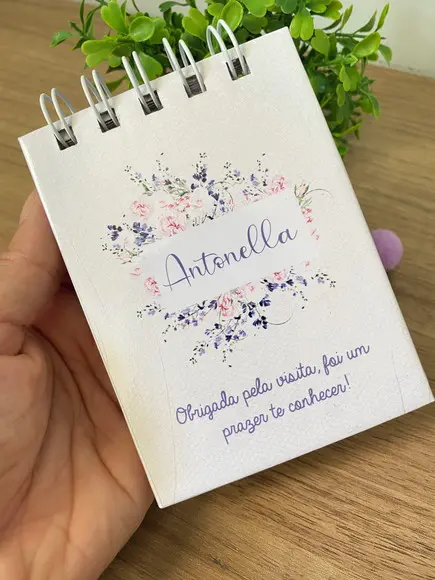 Antonella
Obrigada pela visita, foi um
prazer te conhecer!